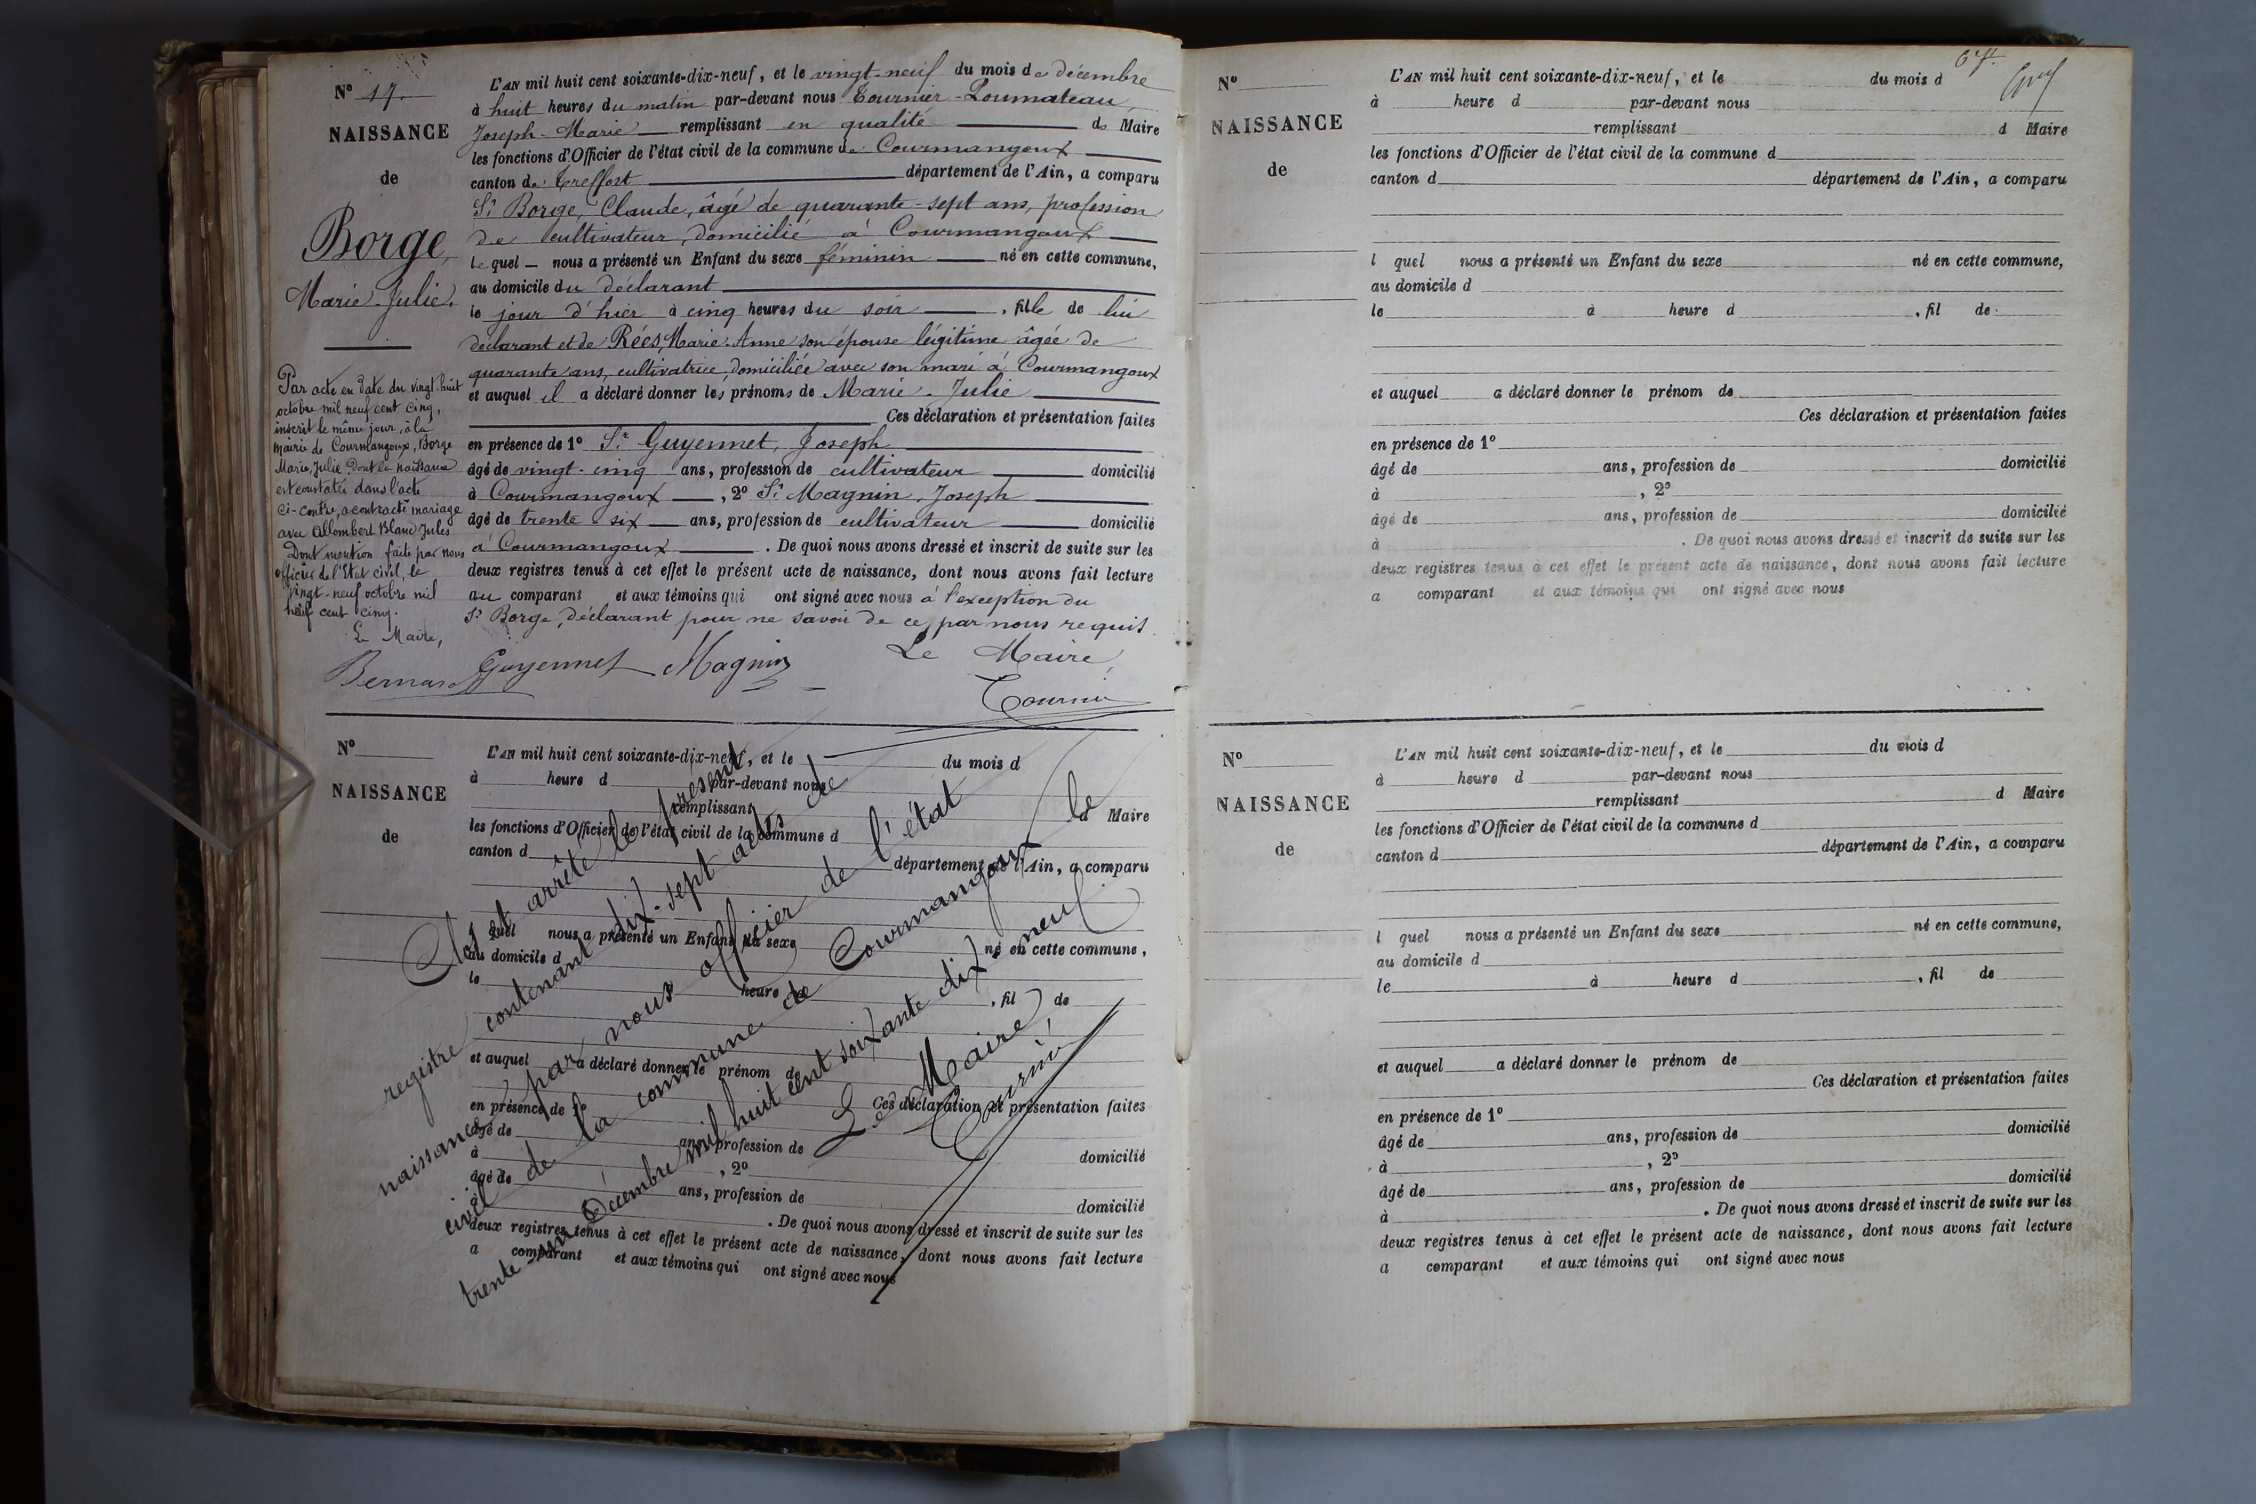 N° 17.
NAISSANCE
de
Borge,
Marie-Julie.
L'AN mil huit cent soixante-dix-neuf, et le vingt-neuf du mois de décembre
à huit heures du matin par-devant nous Tournier-Loumateau,
Joseph-Marie remplissant en qualité de Maire
les fonctions d'Officier de l'état civil de la commune de Courmangoux
canton de Treffort département de l'Ain, a comparu
Sr Borge, Claude, âgé de quarante-sept ans, profession
de cultivateur, domicilié à Courmangoux
lequel nous a présenté un Enfant du sexe féminin né en cette commune,
au domicile du déclarant
le jour d'hier à cinq heures du soir, fille de lui
déclarant et de Rées, Marie-Anne son épouse légitime âgée de
quarante ans, cultivatrice, domiciliée avec son mari à Courmangoux
et auquel il a déclaré donner les prénoms de Marie-Julie
Ces déclaration et présentation faites
en présence de 1° Sr Guyennet, Joseph
âgé de vingt-cinq ans, profession de cultivateur domicilié
à Courmangoux, 2° Sr Magnin, Joseph
âgé de trente six ans, profession de cultivateur domicilié
à Courmangoux. De quoi nous avons dressé et inscrit de suite sur les
deux registres tenus à cet effet le présent acte de naissance, dont nous avons fait lecture
au comparant et aux témoins qui ont signé avec nous à l'exception du
Sr Borge, déclarant pour ne savoir de ce par nous requis
Par acte en date du vingt-huit
octobre mil neuf cent cinq,
inscrit le même jour, à la
mairie de Courmangoux, Borge
Marie, Julie dont la naissance
est constatée dans l'acte
ci-contre, a contracté mariage
avec Allombert Blanc Jules
Dont mention faite par nous
officier de l'Etat civil, le
vingt-neuf octobre mil
neuf cent cinq.
Le Maire,
Bernard Guyennet Magnin Le Maire,
Tournier
N°
NAISSANCE
de
L'AN mil huit cent soixante-dix-neuf, et le du mois d
à heure d par-devant nous
remplissant d Maire
les fonctions d'Officier de l'état civil de la commune d
canton d département de l'Ain, a comparu
l quel nous a présenté un Enfant du sexe né en cette commune,
au domicile d
le heure d, fil de
et auquel a déclaré donner le prénom de
Ces déclaration et présentation faites
en présence de 1°
âgé de ans, profession de domicilié
à , 2°
âgé de ans, profession de domicilié
à . De quoi nous avons dressé et inscrit de suite sur les
deux registres tenus à cet effet le présent acte de naissance, dont nous avons fait lecture
a comparant et aux témoins qui ont signé avec nous
Clos et arrêté le présent
registre contenant dix-sept actes de
naissance par nous officier de l'état
civil de la commune de Courmangoux le
trente-un Décembre mil huit cent soixante dix neuf
Le Maire
Tournier
67.
N°
NAISSANCE
de
L'AN mil huit cent soixante-dix-neuf, et le du mois d
à heure d par-devant nous
remplissant d Maire
les fonctions d'Officier de l'état civil de la commune d
canton d département de l'Ain, a comparu
l quel nous a présenté un Enfant du sexe né en cette commune,
au domicile d
le à heure d , fil de
et auquel a déclaré donner le prénom de
Ces déclaration et présentation faites
en présence de 1°
âgé de ans, profession de domicilié
à , 2°
âgé de ans, profession de domicilié
à . De quoi nous avons dressé et inscrit de suite sur les
deux registres tenus à cet effet le présent acte de naissance, dont nous avons fait lecture
a comparant et aux témoins qui ont signé avec nous
N°
NAISSANCE
de
L'AN mil huit cent soixante-dix-neuf, et le du mois d
à heure d par-devant nous
remplissant d Maire
les fonctions d'Officier de l'état civil de la commune d
canton d département de l'Ain, a comparu
l quel nous a présenté un Enfant du sexe né en cette commune,
au domicile d
le à heure d , fil de
et auquel a déclaré donner le prénom de
Ces déclaration et présentation faites
en présence de 1°
âgé de ans, profession de domicilié
à , 2°
âgé de ans, profession de domicilié
à . De quoi nous avons dressé et inscrit de suite sur les
deux registres tenus à cet effet le présent acte de naissance, dont nous avons fait lecture
a comparant et aux témoins qui ont signé avec nous